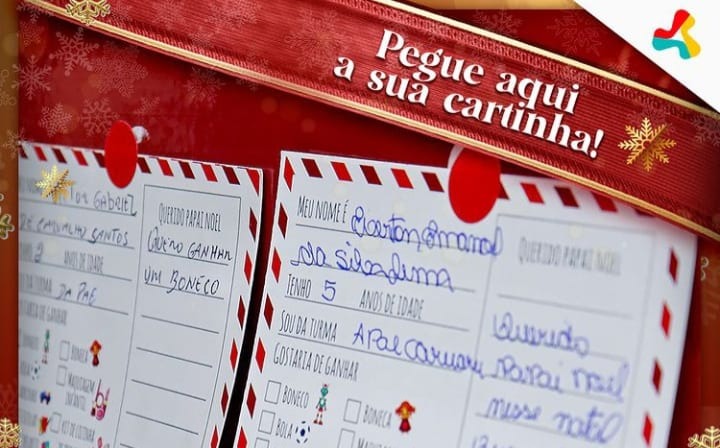 Pegue aqui
a sua cartinha!
GABRIEL
DE CARVALHO SANTOS
2 ANOS DE IDADE
DA TURMA DA PAE
GOSTARIA DE GANHAR
BONECA
MAQUIAGEM INFANTIL
KIT DE COZINHA
QUERIDO PAPAI NOEL
QUERO GANHAR
UM BONECO
MEU NOME É
da Silva Lima
TENHO 5 ANOS DE IDADE
SOU DA TURMA APAE CARUARU
GOSTARIA DE GANHAR
BONECO
BONECA
BOLA
QUERIDO PAPAI NOEL
Querido
Papai Noel
nesse natal